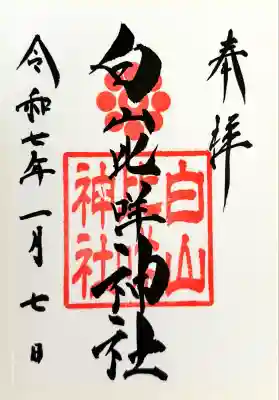 奉拝
白山比咩神社
白山比咩神社
令和七年一月七日